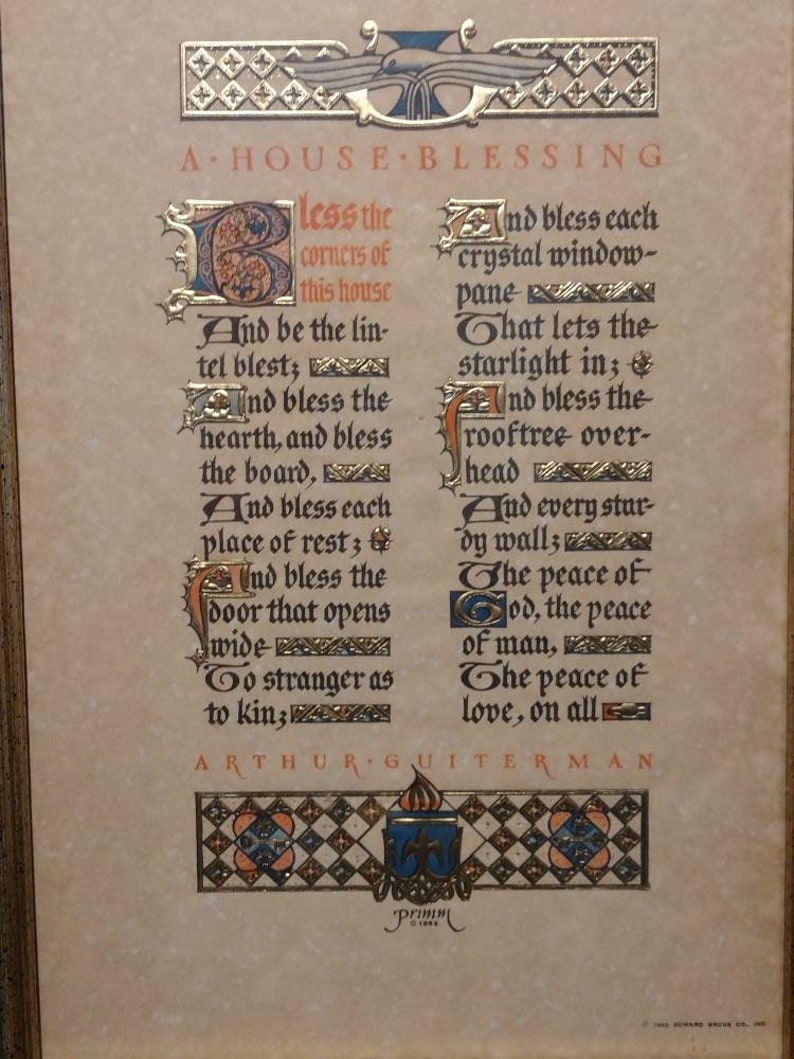 A · HOUSE · BLESSING
Bless the
corners of
this house
And be the lin-
tel blest;
And bless the
hearth, and bless
the board,
And bless each
place of rest;
And bless the
door that opens
wide
To stranger as
to kin;
And bless each
crystal window-
pane
That lets the
starlight in;
And bless the
rooftree over-
head
And every stur-
dy wall;
The peace of
God, the peace
of man,
The peace of
love, on all
ARTHUR · GUITERMAN
primm